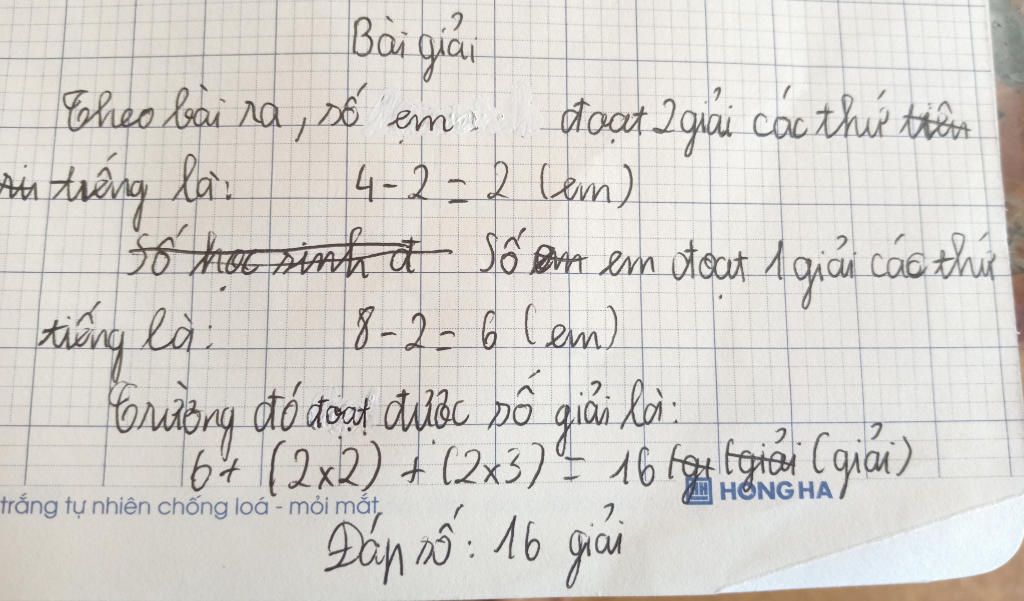 Bài giải
Theo bài ra, số em đoạt 2 giải các thứ
tiếng là: 4 - 2 = 2 (em)
Số em đoạt 1 giải các thứ
tiếng là: 8 - 2 = 6 (em)
Trường đó đoạt được số giải là:
6 + (2x2) + (2x3) = 16 (giải)
HONG HA
trắng tự nhiên chống loá - mỏi mắt
Đáp số: 16 giải